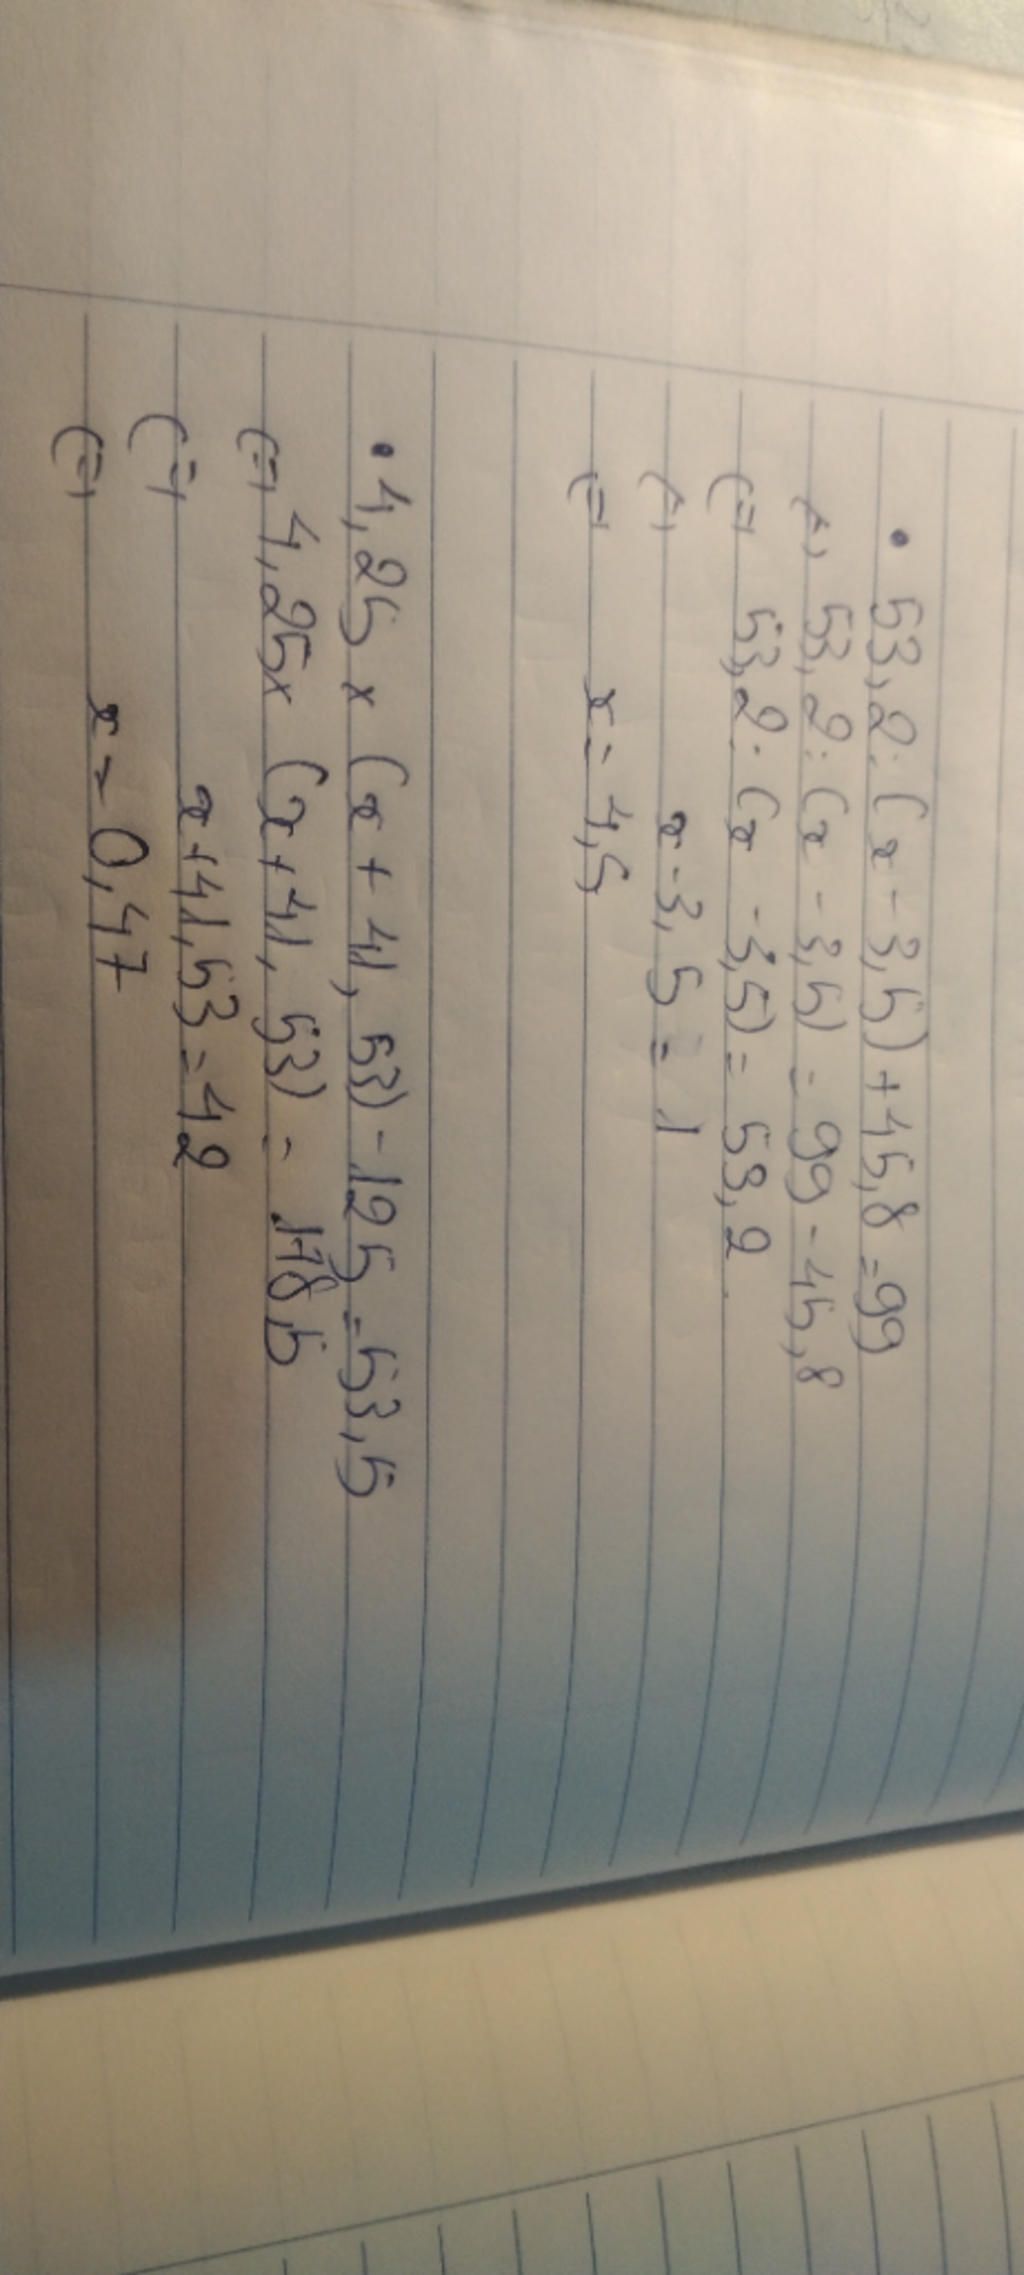 • 53,2 : (x - 3,5) + 45,8 = 99
(=) 53,2 : (x - 3,5) = 99 - 45,8
(=) 53,2 : (x - 3,5) = 53,2
(=) x - 3,5 = 1
(=) x = 4,5
• 4,25 x (x + 41,53) - 125 = 53,5
(=) 4,25 x (x + 41,53) = 178,5
(=) x + 41,53 = 42
(=) x = 0,47